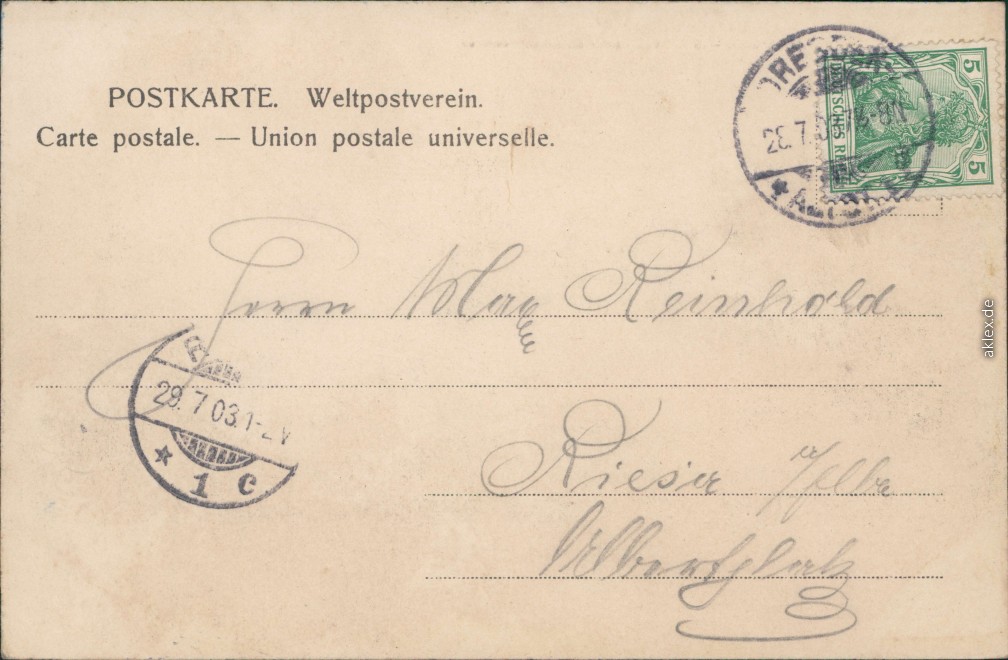 POSTKARTE. Weltpostverein.
Carte postale. — Union postale universelle.
5 5
28.7.
Herrn Max Reinhold
29.7.03.1-2V
* 1 c
Riesa /Elbe
Albertplatz
aklex.de